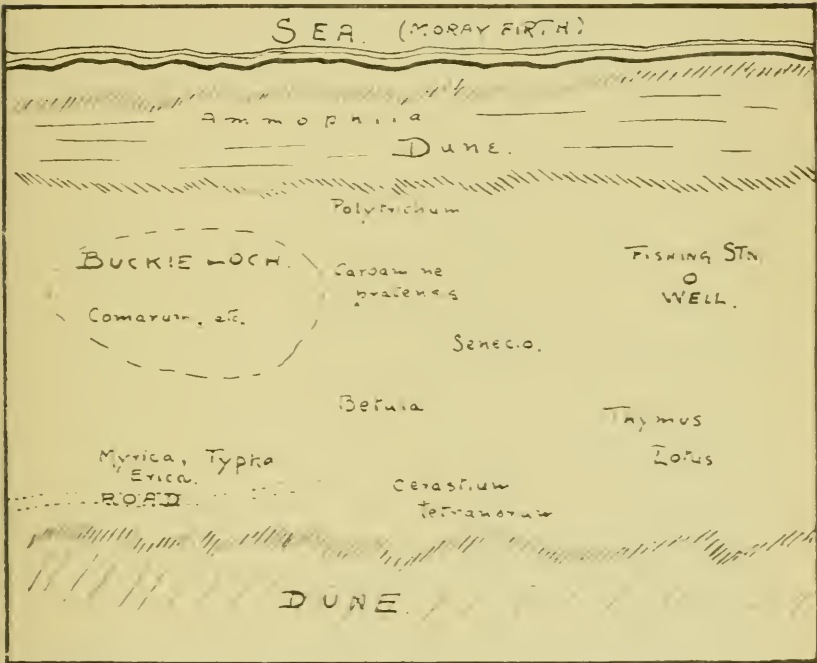 SEA. (MORAY FIRTH)
Ammophila
DUNE.
Polytrichum
BUCKIE LOCH.
Comarum, etc.
Cardamine
pratensis
FISHING STN.
WELL.
Senecio.
Betula
Thymus
Lotus
Myrica, Typha
Erica.
ROAD
Cerastium
tetranorum
DUNE.